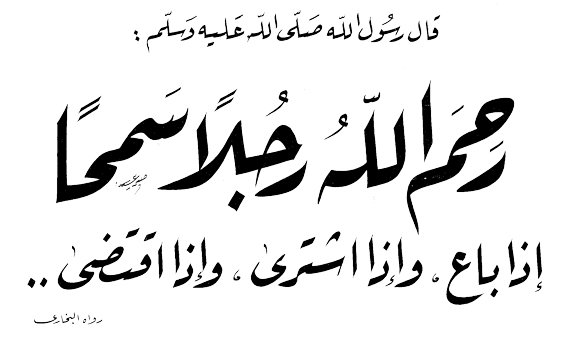 قال رسول الله صَلّى الله عَليه وَسَلّم :
رَحِمَ اللّهُ رَجُلاً سَمحًا
إذا باع ، وإذا اشترى ، وإذا اقتضى ..
رواه البخاري